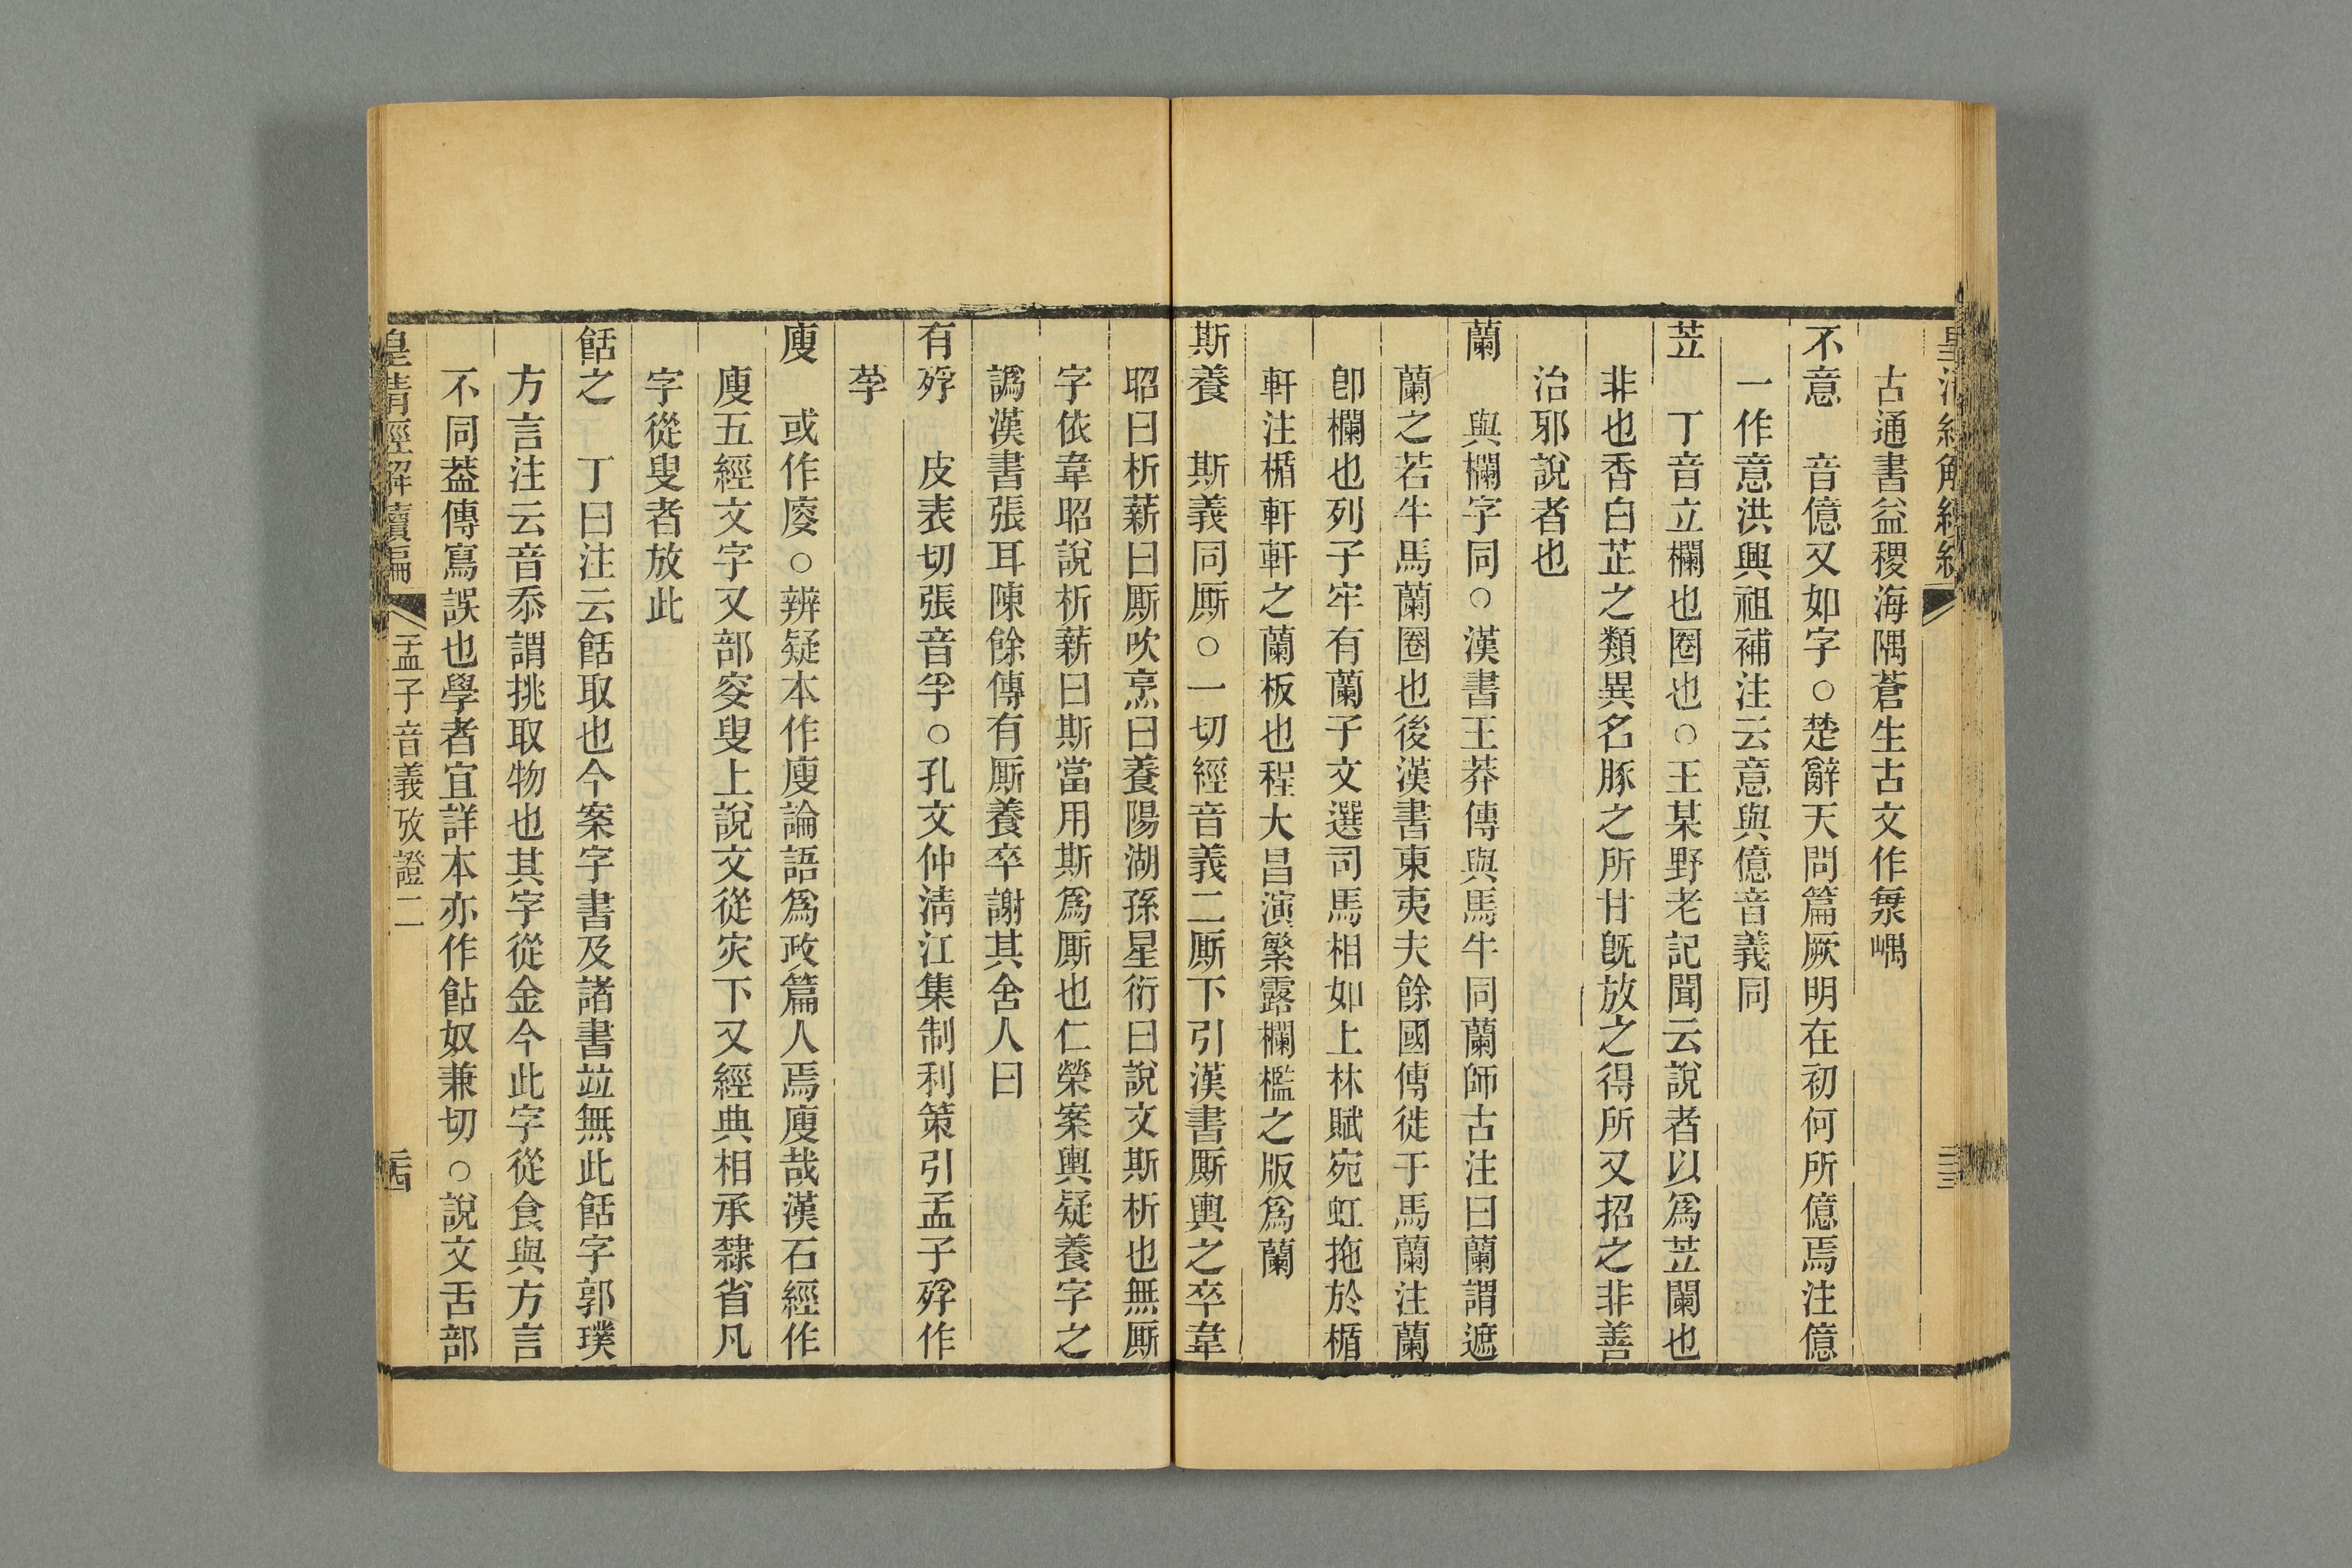 古通書益稷海隅蒼生古文作㮺嵎
不意　音億又如字○楚辭天問篇厥明在初何所億焉注億
一作意洪興祖補注云意與億音義同
苙　丁音立欄也圈也○王某野老記聞云說者以爲苙闌也
非也香白芷之類異名豚之所甘旣放之得所又招之非善
治邪說者也
蘭　與欄字同○漢書王莽傳與馬牛同蘭師古注曰蘭謂遮
蘭之若牛馬蘭圈也後漢書東夷夫餘國傳徙于馬蘭注蘭
卽欄也列子牢有蘭子文選司馬相如上林賦宛虹拖於楯
軒注楯軒軒之蘭板也程大昌演繁露欄檻之版爲蘭
斯養　斯義同厮○一切經音義二厮下引漢書厮輿之卒韋
昭曰析薪曰厮吹烹曰養陽湖孫星衍曰說文斯析也無厮
字依韋昭說析薪曰斯當用斯爲厮也仁榮案輿疑養字之
譌漢書張耳陳餘傳有厮養卒謝其舍人曰
有殍　皮表切張音孚○孔文仲淸江集制利策引孟子殍作
莩
廋　或作廀○辨疑本作廋論語爲政篇人焉廋哉漢石經作
廋五經文字又部叜叟上說文從灾下又經典相承隸省凡
字從叟者放此
餂之　丁曰注云餂取也今案字書及諸書竝無此餂字郭璞
方言注云音忝謂挑取物也其字從金今此字從食與方言
不同葢傳寫誤也學者宜詳本亦作飴奴兼切○說文舌部
皇淸經解續編
孟子音義攷證二